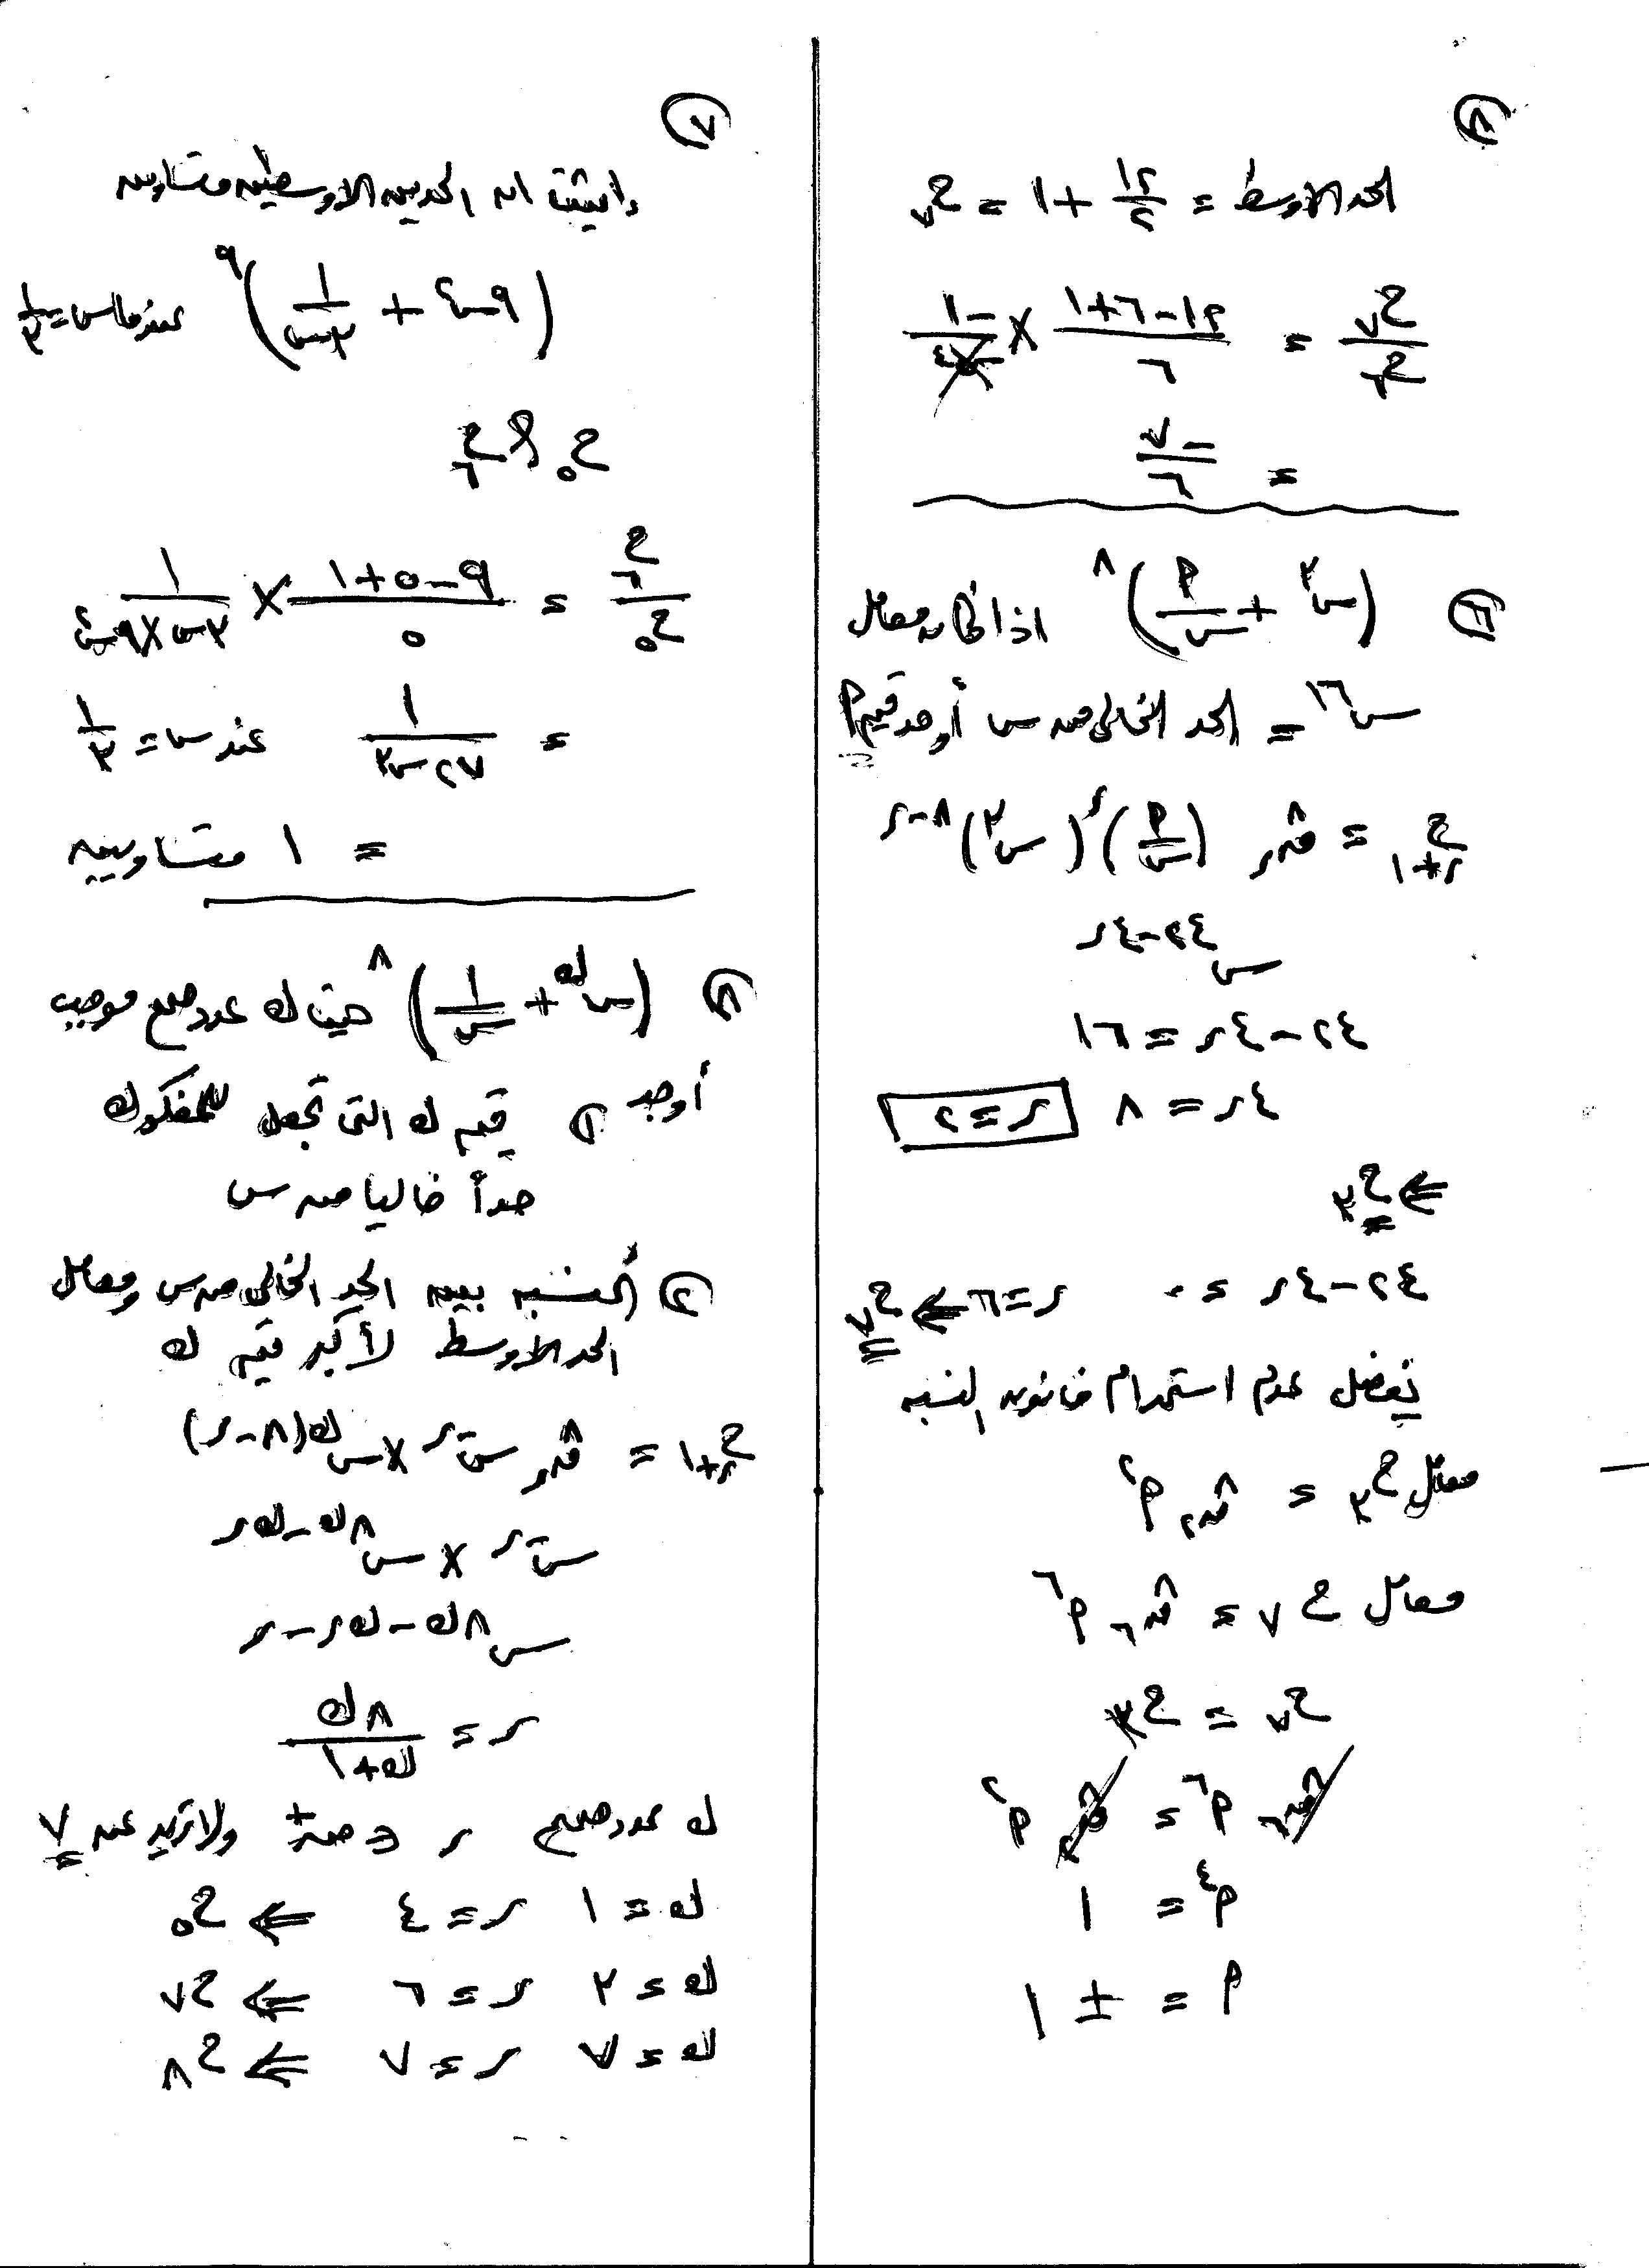 ٢
الحد الاوسط = ١٢/٢ + ١ = ح٧
ح٧/ح٦ = (١٢-٦+١)/٦ × -١/س٤
= -٧/٦
٦ (س٣ + P/س)^٨ اذا كان معامل
س^١٦ = الحد الخالى من س أوجد قيم P
ح ر+١ = ٨ق ر (P/س)^ر (س٣)^٨-ر
س^٢٤-٤ر
٢٤-٤ر = ١٦
٤ر = ٨ ر = ٢
⇐ ح٣
٢٤-٤ر = ٠ ر = ٦ ⇐ ح٧
يفضل عدم استخدام قانون النسبه
معامل ح٣ = ٨ق٢ P^٢
معامل ح٧ = ٨ق٦ P^٦
ح٧ = ح٣
٨ق٦ P^٦ = ٨ق٢ P^٢
P^٤ = ١
P = ± ١
٧
اثبت ان الحدين الاوسطين متساوين
(٩س٢ + ١/٣س)^٩ عندما س = ١/٣
ح٥ ، ح٦
ح٦/ح٥ = (٩-٥+١)/٥ × ١/(٣س×٩س٢)
= ١/٢٧س٣ عند س = ١/٣
= ١ متساويين
٨ (س^ك + ١/س)^٨ حيث ك عدد صحيح موجب
أوجد ١) قيم ك التى تجعل للمفكوك
حداً خاليا من س
٢) النسبه بين الحد الخالى من س ومعامل
الحد الاوسط لأكبر قيم ك
ح ر+١ = ٨ق ر س^-ر × س^ك(٨-ر)
س^-ر × س^٨ك-ك ر
س^٨ك-ك ر-ر
ر = ٨ك/(ك+١)
ك عدد صحيح ر ∈ ص+ ولا تزيد عن ٧
ك = ١ ر = ٤ ⇐ ح٥
ك = ٣ ر = ٦ ⇐ ح٧
ك = ٧ ر = ٧ ⇐ ح٨